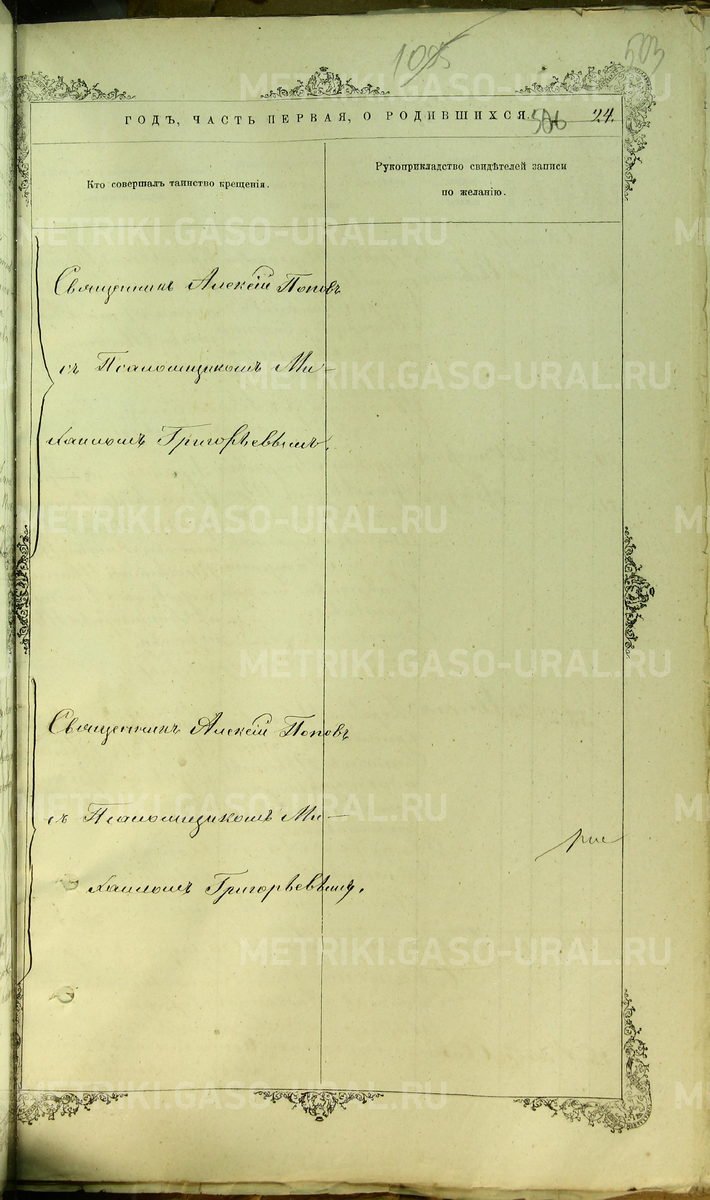 1095
503
ГОДЪ, ЧАСТЬ ПЕРВАЯ, О РОДИВШИХСЯ. 506 24.
Кто совершалъ таинство крещенія.
Рукоприкладство свидѣтелей записи
по желанію.
Священникъ Алексій Поповъ
съ Псаломщикомъ Ми-
хаиломъ Григорьевымъ.
Священникъ Алексій Поповъ
съ Псаломщикомъ Ми-
хаиломъ Григорьевымъ.
METRIKI.GASO-URAL.RU